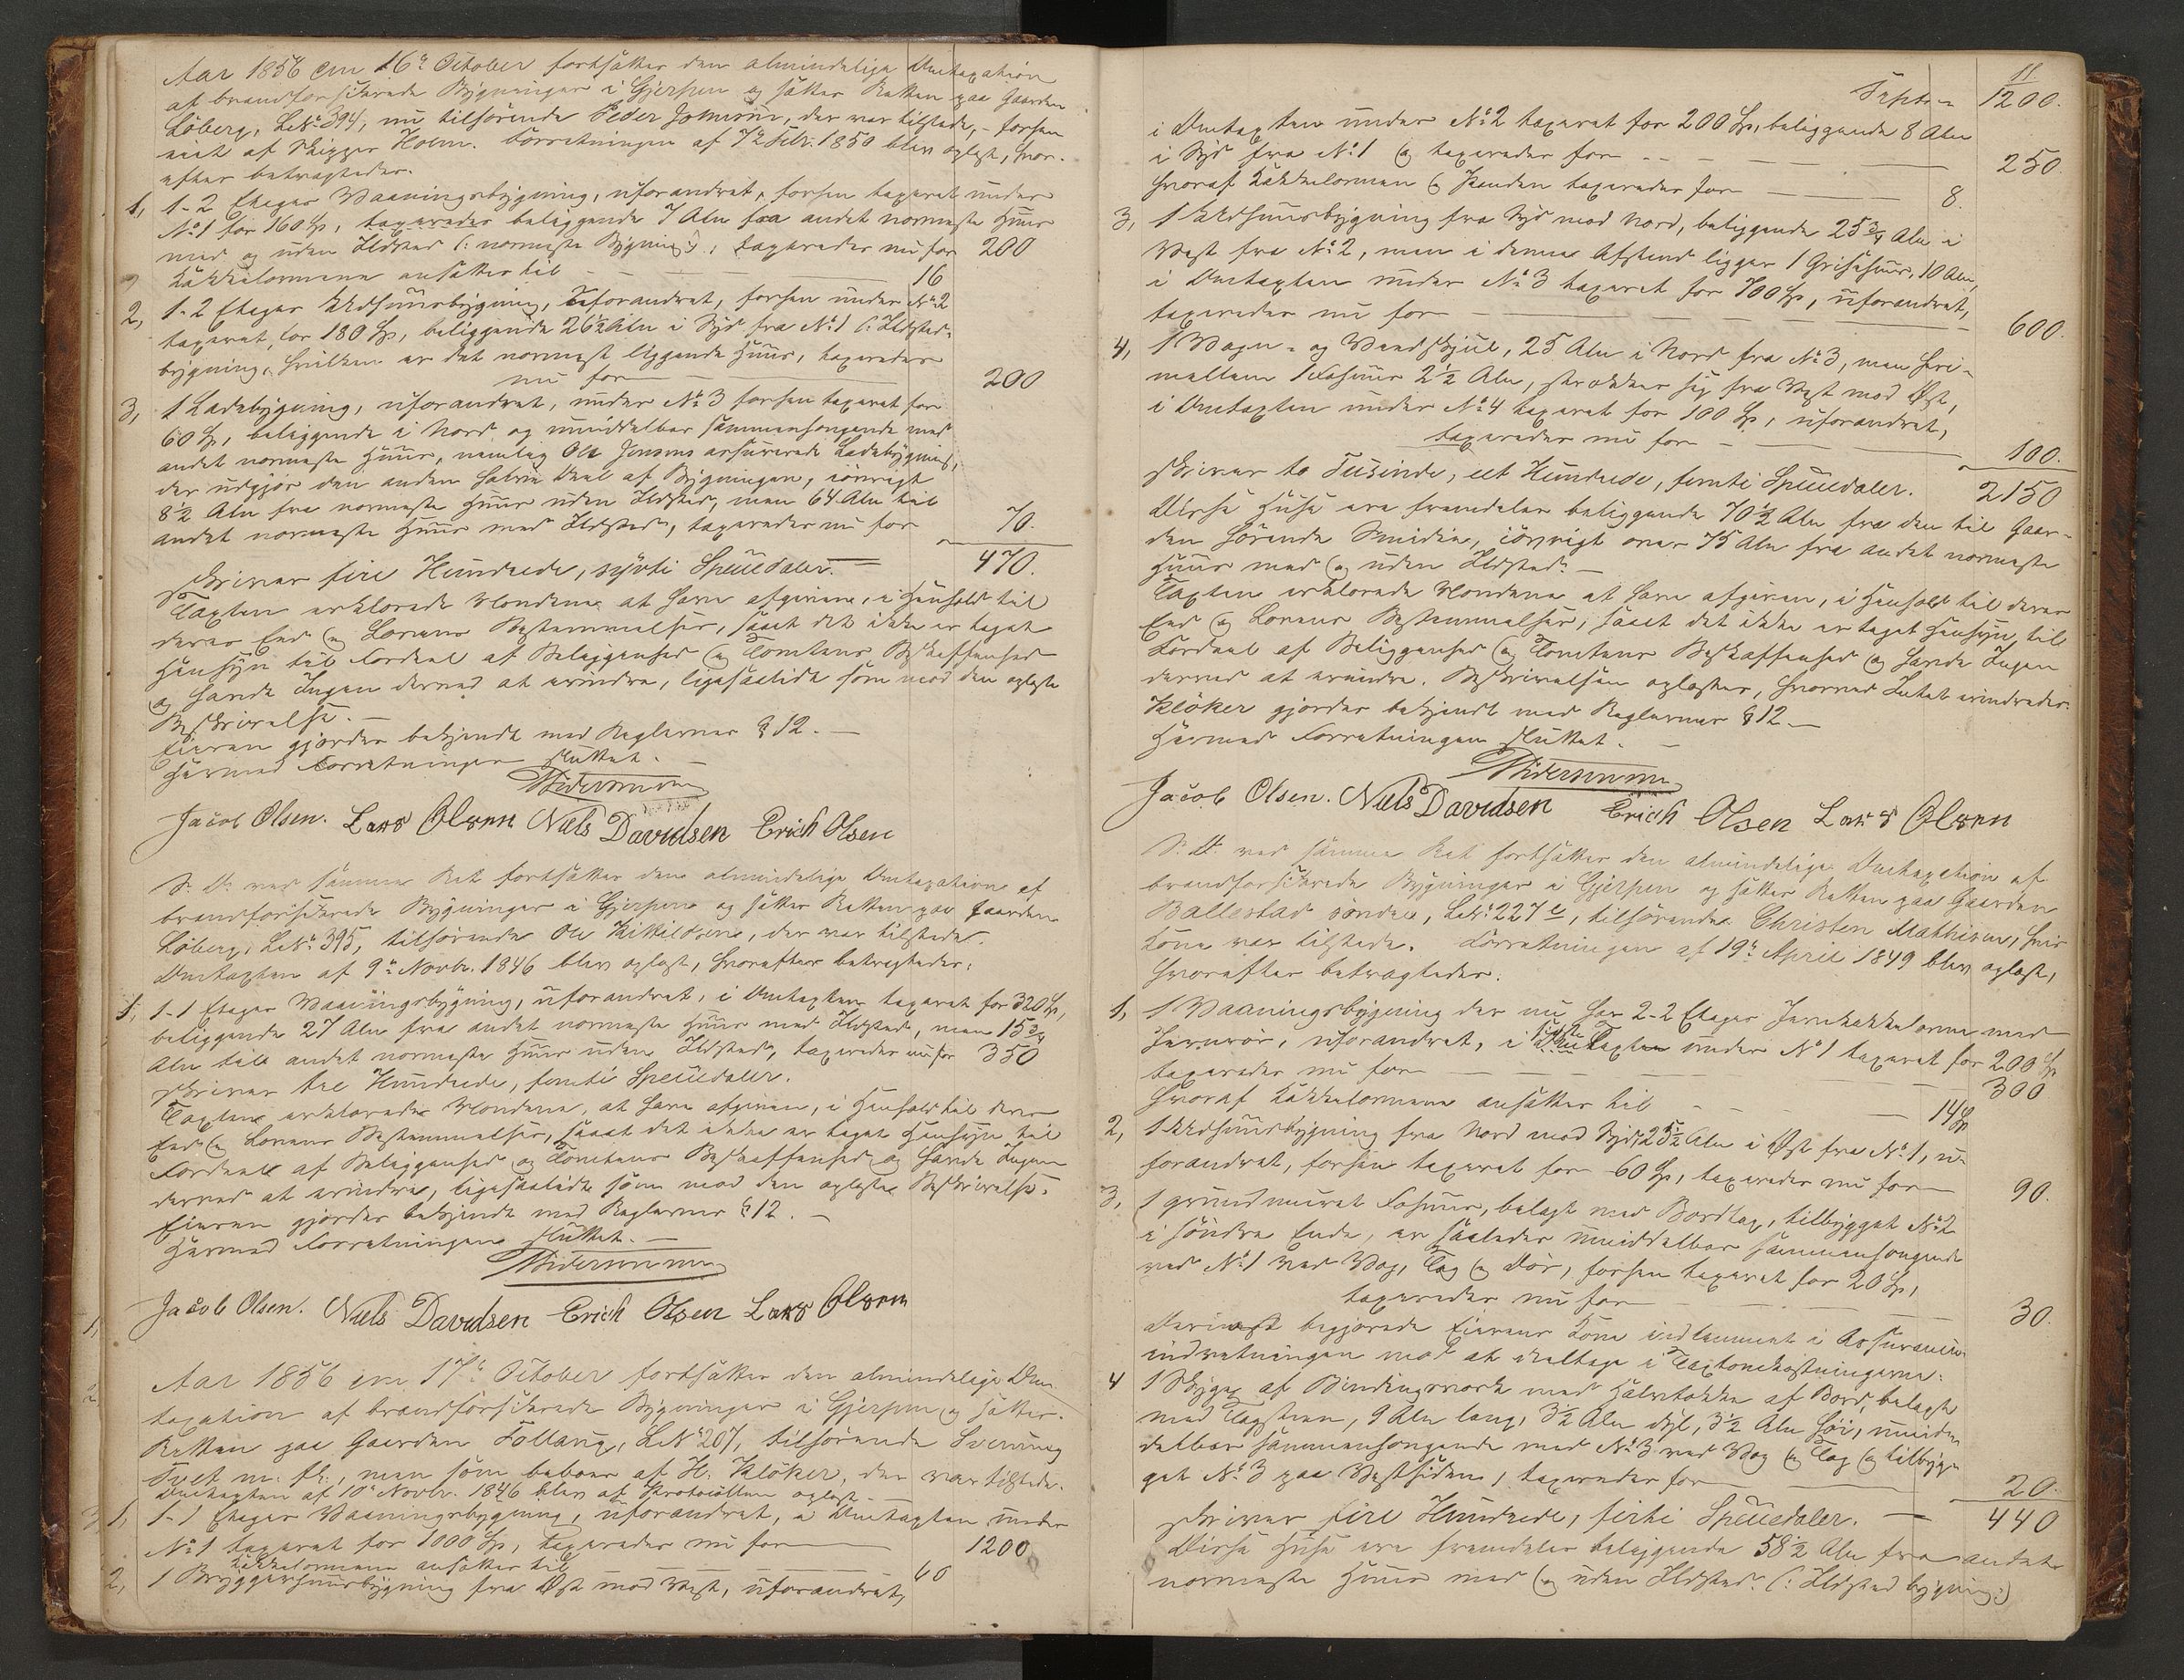 Aar 1856 den 16de October fortsattes den almindelige Omtaxation
af brandforsikrede Bygninger i Gjerpen og sattes Retten paa Gaarden
Löberg, LNo 394, nu tilhörende Peder Johnsen, der var tilstede, forhen
eiet af Skipper Holm. Forretningen af 7de Febr. 1850 blev oplæst, hvor-
efter betragtedes.
1, 1-2 Etages Vaaningsbygning, uforandret, forhen taxeret under
No 1 for 160 Sp, taxeredes beliggende 7 Alen fra andet nærmeste Huus
med og uden Ildsted (: nærmeste Bygning :), taxeredes nu for 200
Kakkelovnene ansattes til 16
2, 1-2 Etages Udhuusbygning, uforandret, forhen under No 2
taxeret for 180 Sp, beliggende 26½ Alen i Syd fra No 1 (: Ildsted-
bygning, hvilken er det nærmest liggende Huus, taxeredes
nu for 200
3, 1 Ladebygning, uforandret, under No 3 forhen taxeret for
60 Sp, beliggende i Nord og umiddelbar sammenhængende med
andet nærmeste Huus, nemlig Ole Jensens assurerede Ladebygning,
der udgjør den anden halve Deel af Bygningen, iövrigt
8½ Alen fra nærmeste Huus uden Ildsted, men 64 Alen til
andet nærmeste Huus med Ildsted, taxeredes nu for 70.
470.
skriver fire Hundrede, syvti Speciedaler.
Taxten erklærede Mændene at have afgivet, i Henhold til
deres Eed og Lovens Bestemmelser, saaat det ikke er taget
Hensyn til Fordeel af Beliggenhed og Tomtens Beskaffenhed
og havde Ingen derved at erindre, ligesaalidt som mod den oplæste
Beskrivelse.
Eieren gjordes bekjendt med Reglernes § 12.
Hermed Forretningen sluttet.
Jacob Olsen. Lars Olsen Niels Davidsen Erich Olsen
S. D. ved samme Ret fortsattes den almindelige Omtaxation af
brandforsikrede Bygninger i Gjerpen og sattes Retten paa Gaarden
Löberg, LNo 395, tilhörende Ole Kittilsen, der var tilstede.
Omtaxten af 9de Novbr. 1846 blev oplæst, hvorefter betragtedes:
1, 1-1 Etages Vaaningsbygning, uforandret, i Omtaxten taxeret for 320 Sp,
beliggende 27 Alen fra andet nærmeste Huus med Ildsted, men 15¾
Alen til andet nærmeste Huus uden Ildsted, taxeredes nu for 350
skriver tre Hundrede, femti Speciedaler.
Taxten erklærede Mændene, at have afgivet, i Henhold til deres
Eed og Lovens Bestemmelser, saaat det ikke er taget Hensyn til
Fordeel af Beliggenhed og Tomtens Beskaffenhed og havde Ingen
derved at erindre, ligesaalidt som mod den oplæste Beskrivelse.
Eieren gjordes bekjendt med Reglernes § 12.
Hermed Forretningen sluttet.
Jacob Olsen. Niels Davidsen Erich Olsen Lars Olsen
Aar 1856 den 17de October fortsattes den almindelige Om-
taxation af brandforsikrede Bygninger i Gjerpen og sattes
Retten paa Gaarden Follaug, LNo 207, tilhörende
Tveit m: fl:, men som beboes af H. Klöker, der var tilstede.
Omtaxten af 10de Novbr. 1846 blev af Protocollen oplæst.
1, 1-1 Etages Vaaningsbygning, uforandret, i Omtaxten under
No 1 taxeret for 1000 Sp, taxeredes nu for 1200
Kakkelovnene ansattes til 60
2, 1 Bryggerhuusbygning fra Øst mod Vest, uforandret,
11
Transp. 1200.
i Omtaxten under No 2 taxeret for 200 Sp, beliggende 8 Alen
i Syd fra No 1 og taxeredes for 250.
hvoraf Kakkelovnen og Panden taxeredes for 8.
3, 1 Udhuusbygning fra Syd mod Nord, beliggende 25¾ Alen i
Vest fra No 2, men i dennes Afstand ligger 1 Grisehuus, 10 Alen,
i Omtaxten under No 3 taxeret for 700 Sp, uforandret,
taxeredes nu for 600.
4, 1 Vogn- og Vedskjul, 25 Alen i Nord fra No 3, men heri-
mellem 1 Fæhuus 2½ Alen, strækker sig fra Vest mod Øst,
i Omtaxten under No 4 taxeret for 100 Sp, uforandret,
taxeredes nu for 100.
skriver to Tusinde, eet Hundrede, femti Speciedaler. 2150
Disse Huse ere fremdeles beliggende 70½ Alen fra den til Gaar-
den hørende Smidie, iövrigt over 75 Alen fra andet nærmeste
Huus med og uden Ildsted.
Taxten erklærede Mændene at have afgivet, i Henhold til deres
Eed og Lovens Bestemmelser, saaat det ikke er taget Hensyn til
Fordeel af Beliggenhed og Tomtens Beskaffenhed og havde Ingen
derved at erindre. Beskrivelsen oplæstes, hvorved Intet erindredes.
Klöker gjordes bekjendt med Reglernes § 12.
Hermed Forretningen sluttet.
Jacob Olsen. Niels Davidsen Erich Olsen Lars Olsen
S. D. ved samme Ret fortsattes den almindelige Omtaxation af
brandforsikrede Bygninger i Gjerpen og sattes Retten paa Gaarden
Ballestad söndre, LNo 227 c, tilhörende Christen Mathisen, hvis
Kone var tilstede. Forretningen af 19de April 1849 blev oplæst,
hvorefter betragtedes:
1, 1 Vaaningsbygning der nu har 2-2 Etager Jernkakkelovne med
Jernrör, uforandret, i sidste Taxten under No 1 taxeret for 200 Sp
taxeredes nu for 300
hvoraf Kakkelovnene ansattes til 14 Sp
2, 1 Udhuusbygning fra Nord mod Syd, 25½ Alen i Øst fra No 1, u-
forandret, forhen taxeret for 60 Sp, taxeredes nu for 90.
3, 1 grundmuret Fæhuus, belagt med Bordtag, tilbygget No 2
i söndre Ende, er saaledes umiddelbar sammenhængende
ved No 1 ved Væg, Tag og Dör, forhen taxeret for 20 Sp,
taxeredes nu for 30.
Dernæst begjærede Eierens Kone indlemmet i Assurance
indretningen mod at deeltage i Taxtomkostningerne:
4 1 Skygge af Bindingsverk med Halvtække af Bord, belagt
med Tagsteen, 9 Alen lang, 3½ Alen dyb, 3½ Alen höi, umid-
delbar sammenhængende med No 3 ved Væg og Tag og tilbyg-
get No 3 paa Vestsiden, taxeredes for 20
skriver fire Hundrede, firti Speciedaler. 440
Disse Huse ere fremdeles beliggende 58½ Alen fra andet
nærmeste Huus med og uden Ildsted. (: Ildstedbygning :)